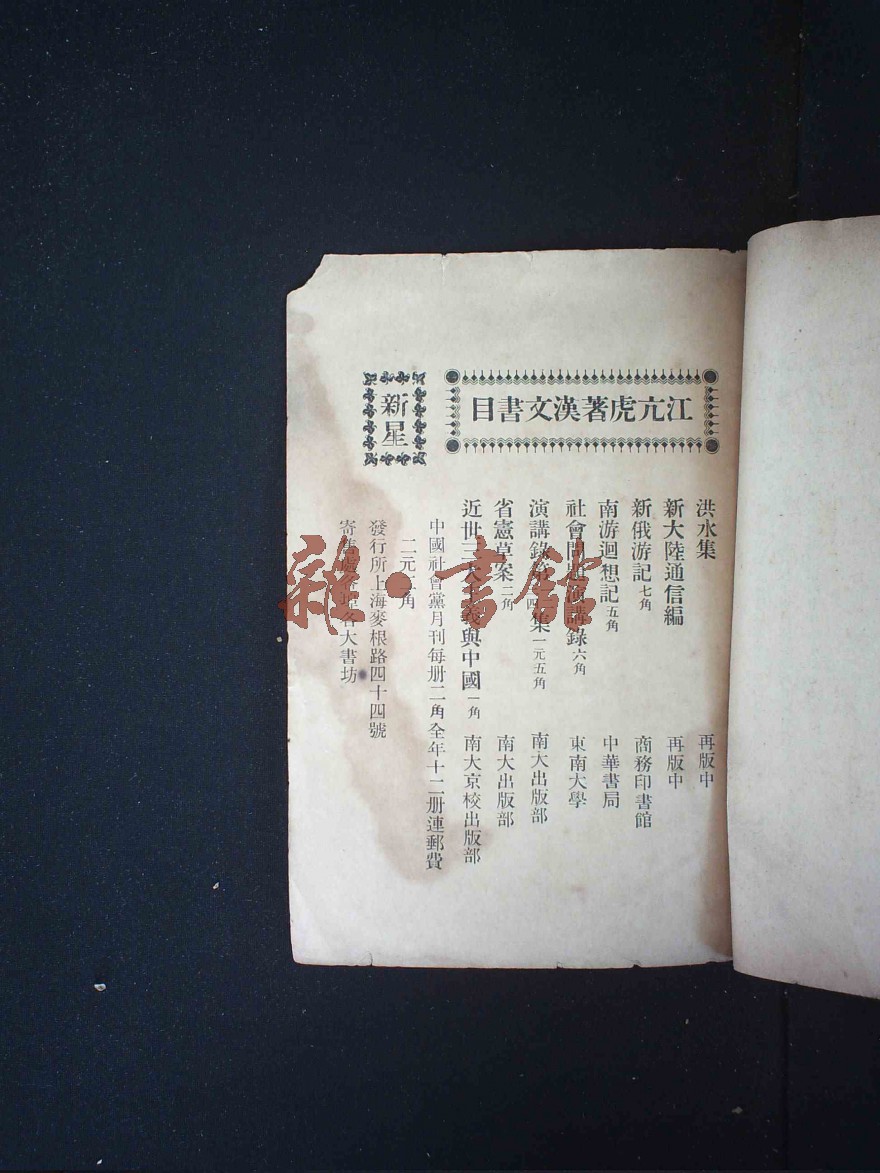 江亢虎著漢文書目
洪水集 再版中
新大陸通信編 再版中
新俄游記 七角 商務印書館
南游迴想記 五角 中華書局
社會問題演講錄 六角 東南大學
演講錄第 集 一元五角 南大出版部
省憲草案 二角 南大出版部
近世三大主義與中國 一角 南大京校出版部
新星
中國社會黨月刊每册二角全年十二册連郵費
二元二角
發行所上海麥根路四十四號
寄售處各埠各大書坊
雜·書館